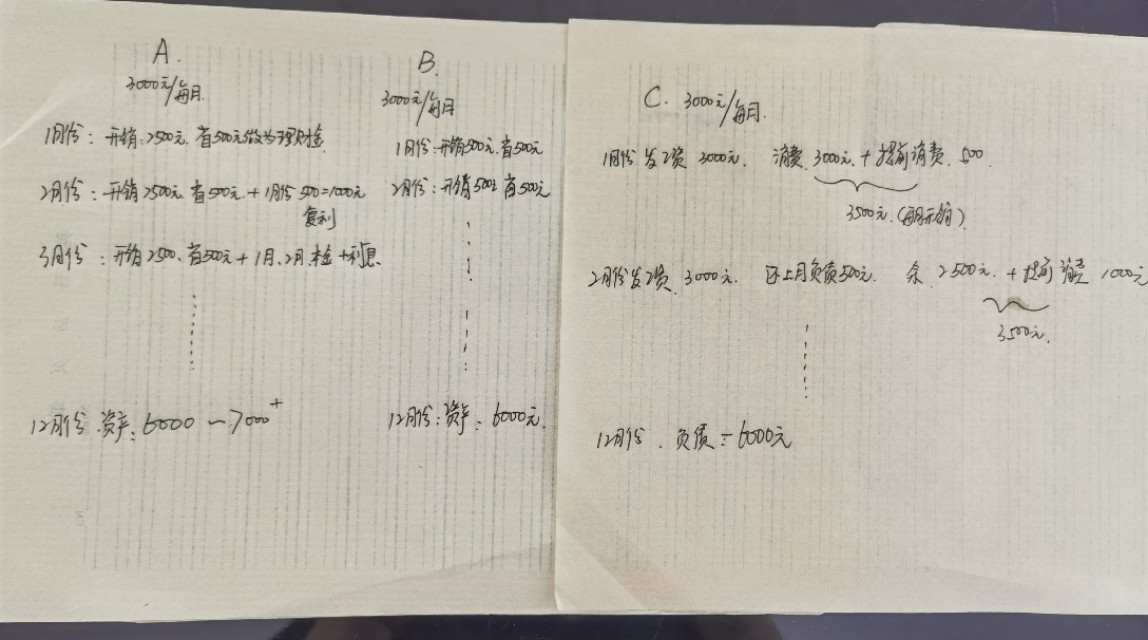 A.
3000元/每月
1月份：开销：2500元，省500元做为理财金
2月份：开销2500元，省500元 + 1月份500=1000元
复利
3月份：开销2500、省500元 + 1月、2月 本金 + 利息
12月份 资产：6000 ~ 7000+
B.
3000元/每月
1月份：开销500元，省500元
2月份：开销500 省500元
12月份：资产：6000元.
C. 3000元/每月.
1月份 发工资 3000元. 消费 3000元 + 提前消费 500.
3500元. (每月开销)
2月份发工资 3000元. 还上月负债500元. 余 2500元. + 提前消费 1000元
3500元.
12月份. 负债：-6000元